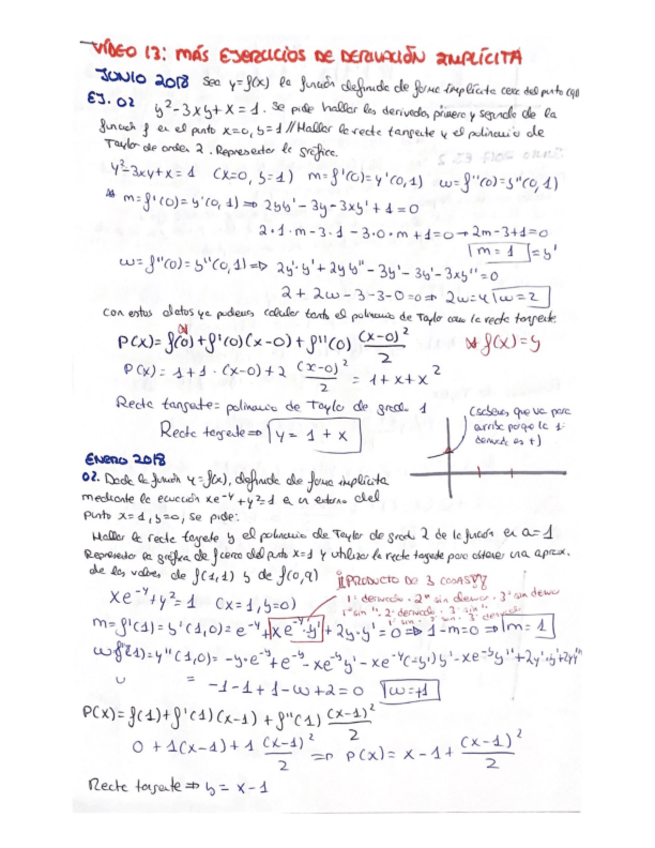 VÍDEO 13: MÁS EJERCICIOS DE DERIVACIÓN IMPLÍCITA
JUNIO 2018 Sea y=f(x) la función definida de forma implícita cerca del punto
EJ. 02 y²-3xy+x=1. Se pide hallar las derivadas primera y segunda de la
función f en el punto x=0, y=1 // Hallar la recta tangente y el polinomio de
Taylor de orden 2. Representar la gráfica.
y²-3xy+x=1 (x=0, y=1) m=f'(0)=y'(0,1) w=f''(0)=y''(0,1)
* m=f'(0)=y'(0,1) ⇒ 2yy'-3y-3xy'+1=0
2·1·m-3·1-3·0·m+1=0 → 2m-3+1=0
m=1 =y'
w=f''(0)=y''(0,1) ⇒ 2y'·y'+2yy''-3y'-3y'-3xy''=0
2+2w-3-3-0=0 ⇒ 2w=4 w=2
Con estos datos ya podemos calcular tanto el polinomio de Taylor como la recta tangente
P(x)=f(0)+f'(0)(x-0)+f''(0) (x-0)²/2 * f(x)=y
P(x)=1+1·(x-0)+2 (x-0)²/2 = 1+x+x²
Recta tangente = polinomio de Taylor de grado 1
Recta tangente ⇒ y=1+x
(sabemos que va para
arriba porque la 1ª
derivada es +)
ENERO 2018
02. Dada la función y=f(x), definida de forma implícita
mediante la ecuación xe^-y+y²=1 en un entorno del
punto x=1, y=0, se pide:
Hallar la recta tangente y el polinomio de Taylor de grado 2 de la función en a=1
Representar la gráfica de f cerca del punto x=1 y utilizar la recta tangente para obtener una aprox.
de los valores de f(1,1) y de f(0,9)
¡¡PRODUCTO DE 3 COSAS!!
1ª derivada · 2ª sin derivar · 3ª sin derivar
1ª sin " · 2ª derivada · 3ª sin "
1ª sin · 2ª sin · 3ª derivada
xe^-y+y²=1 (x=1, y=0)
m=f'(1)=y'(1,0)=e^-y+xe^-y·y'+2y·y'=0 ⇒ 1-m=0 ⇒ m=1
w f''(1)=y''(1,0)=-y·e^-y+e^-y-xe^-y y'-xe^-y(-y')y'-xe^-y y''+2y'·y'+2yy''
= -1-1+1-w+2=0 w=+1
P(x)=f(1)+f'(1)(x-1)+f''(1) (x-1)²/2
0+1(x-1)+1 (x-1)²/2 ⇒ P(x)=x-1+ (x-1)²/2
Recta tangente ⇒ y=x-1